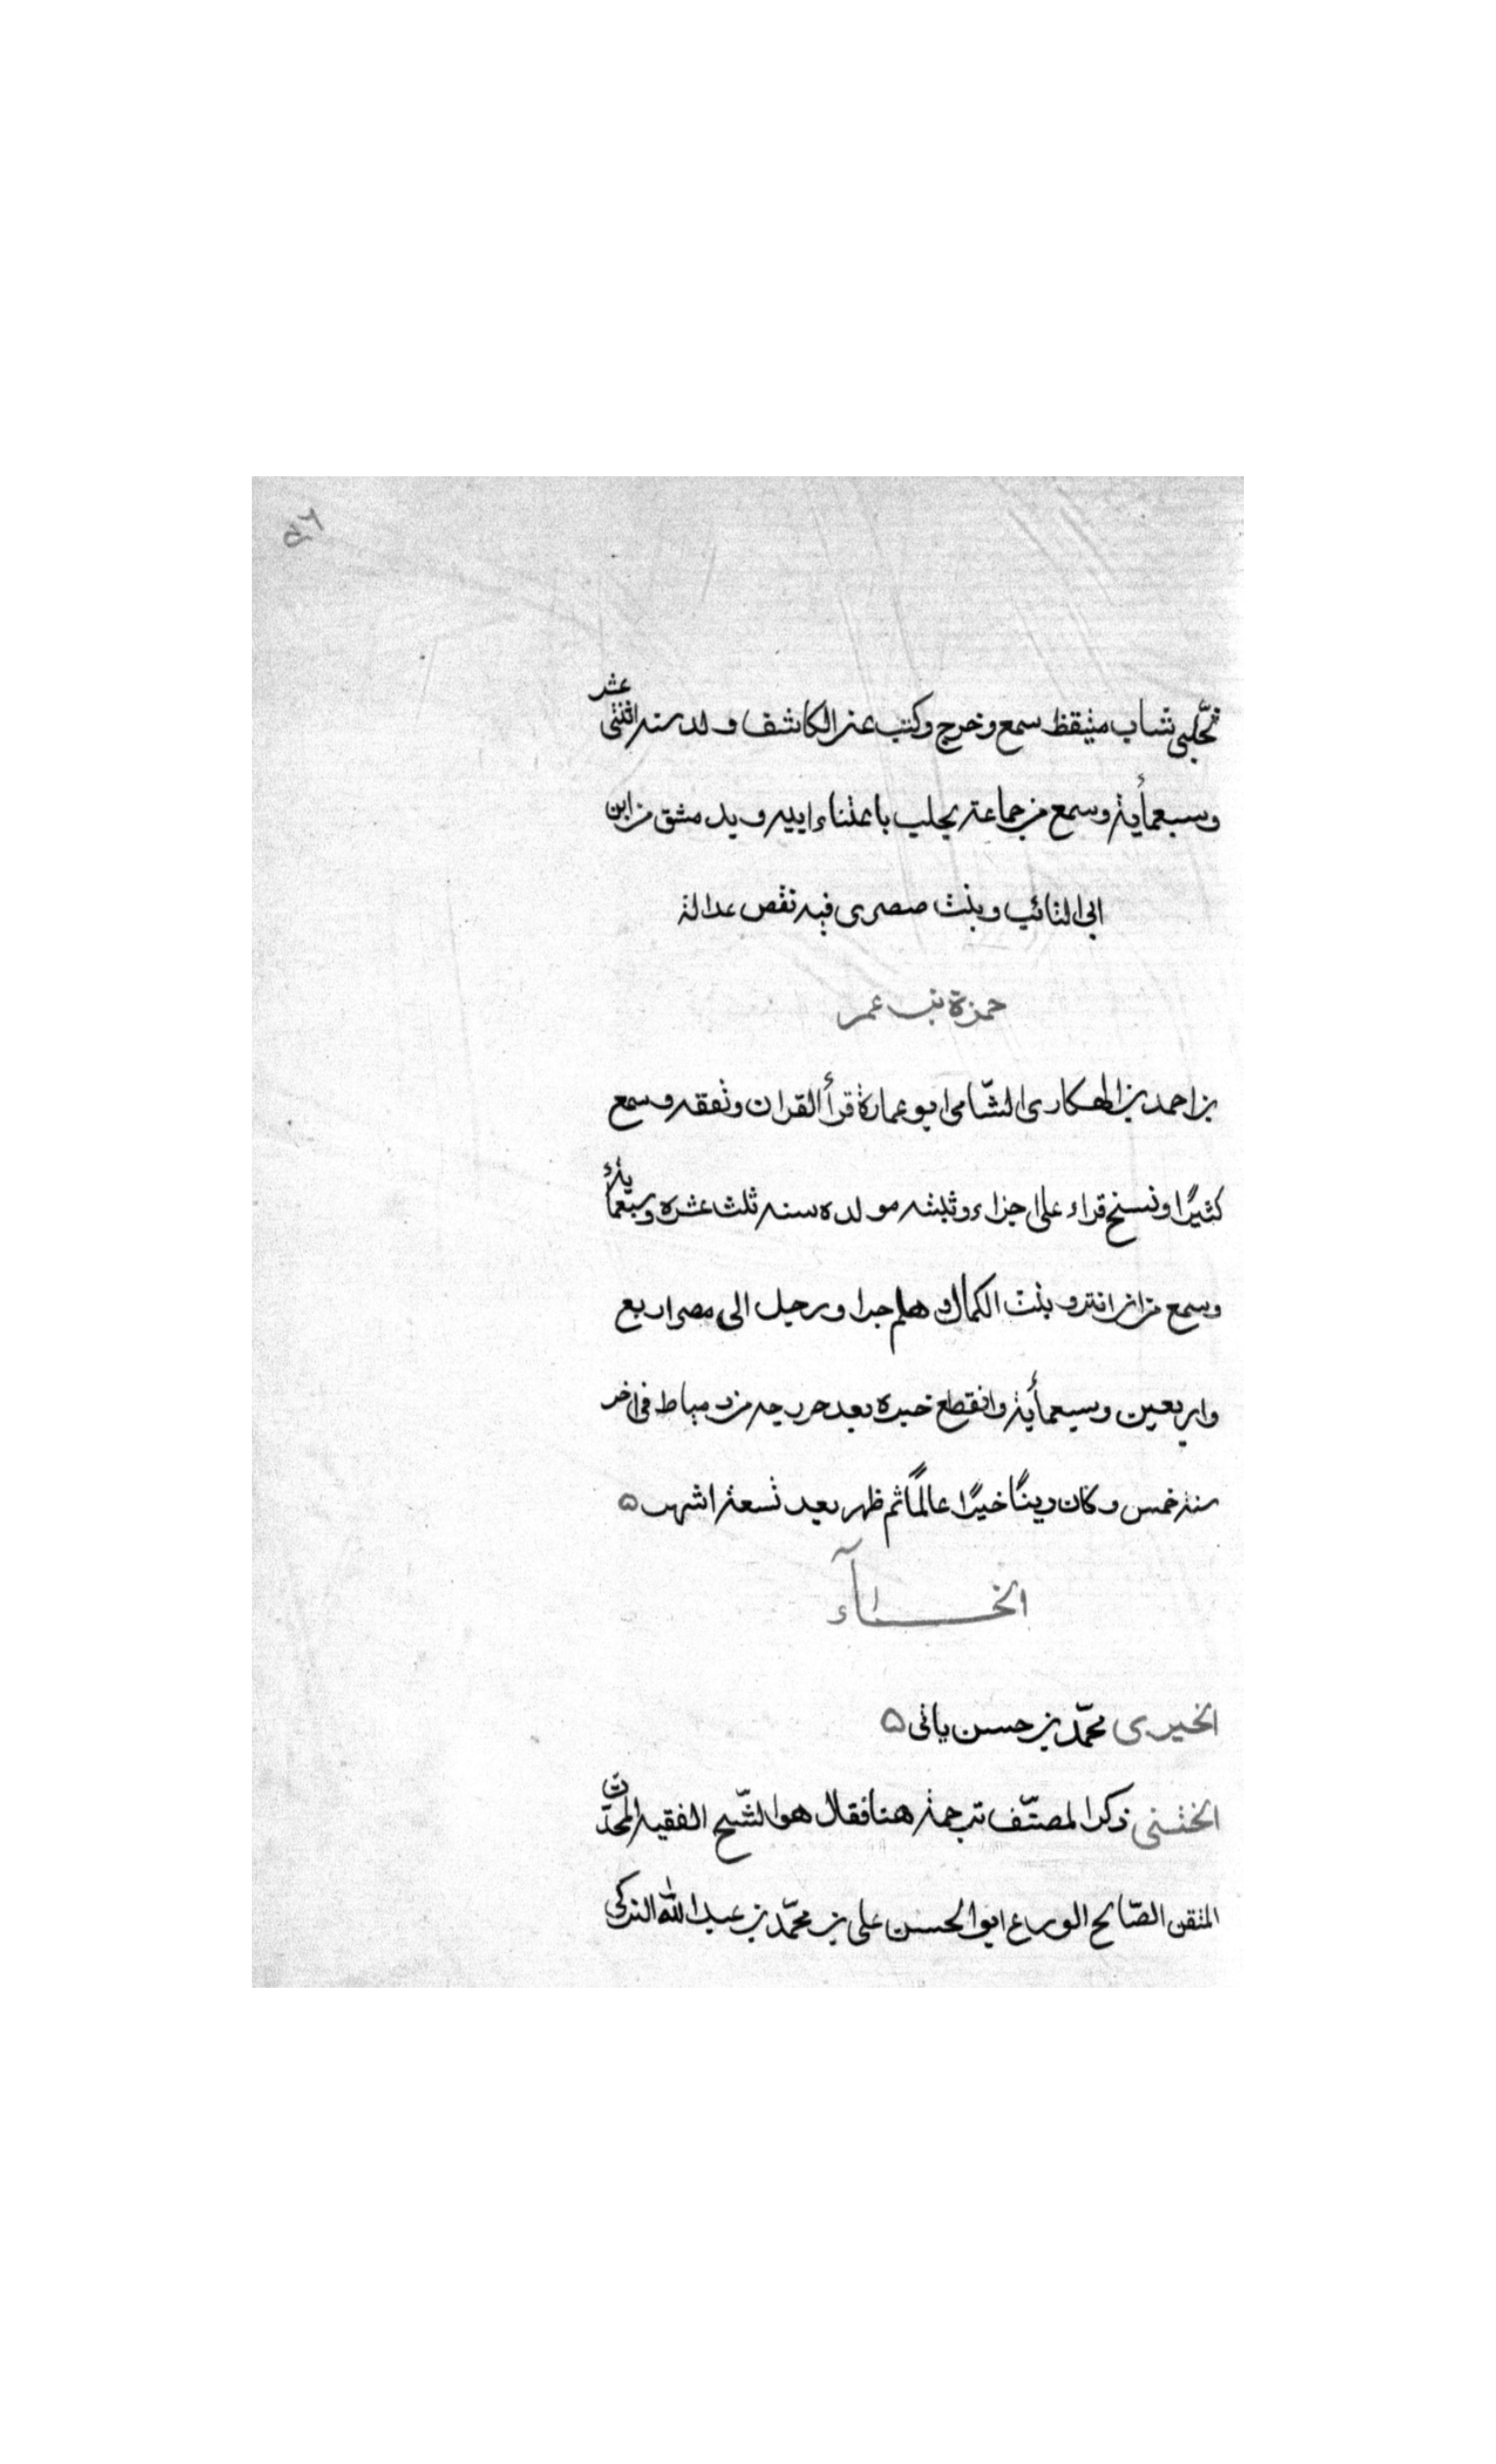 ٥٦
ثم حلبي شاب متيقظ سمع وخرج وكتب عنى الكاشف ولد سنه اثنتى عشر
وسبعمأية وسمع من جماعة بحلب باعتناء ابيه وبدمشق من ابن
ابى التائب وبنت صصرى فيه نقص عدالة
حمزة بن عمر
بن احمد بن الهكارى الشامى ابو عمارة قرأ القران وتفقه وسمع
كثيرًا ونسخ قراء على اجزاء وثبته مولده سنه ثلث عشره وسبعمأية
وسمع من وبنت الكمال وهلم جرا ورحل الى مصر اربع
واربعين وسبعمأية وانقطع خبره بعد خروجه من دمياط فى اخر
سنة خمس وكان دينًا خيرًا عالمًا ثم ظهر بعد تسعة اشهر ٥
الخــاآء
الخيرى محمّد بن حسن ياتى ٥
الختنى ذكر المصنّف ترجمة هنا فقال هو الشّيخ الفقيه المحدّث
المتقن الصّالح الورع ابو الحسن على بن محمّد بن عبد الله التركى